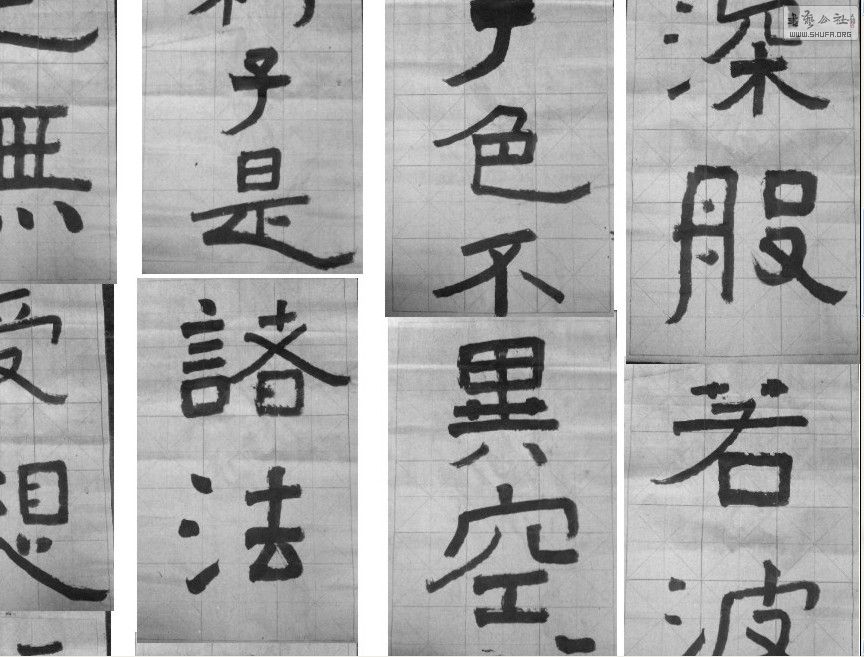 深般若波
子色不異空
利子是諸法
無受想
书艺公社
WWW.SHUFA.ORG